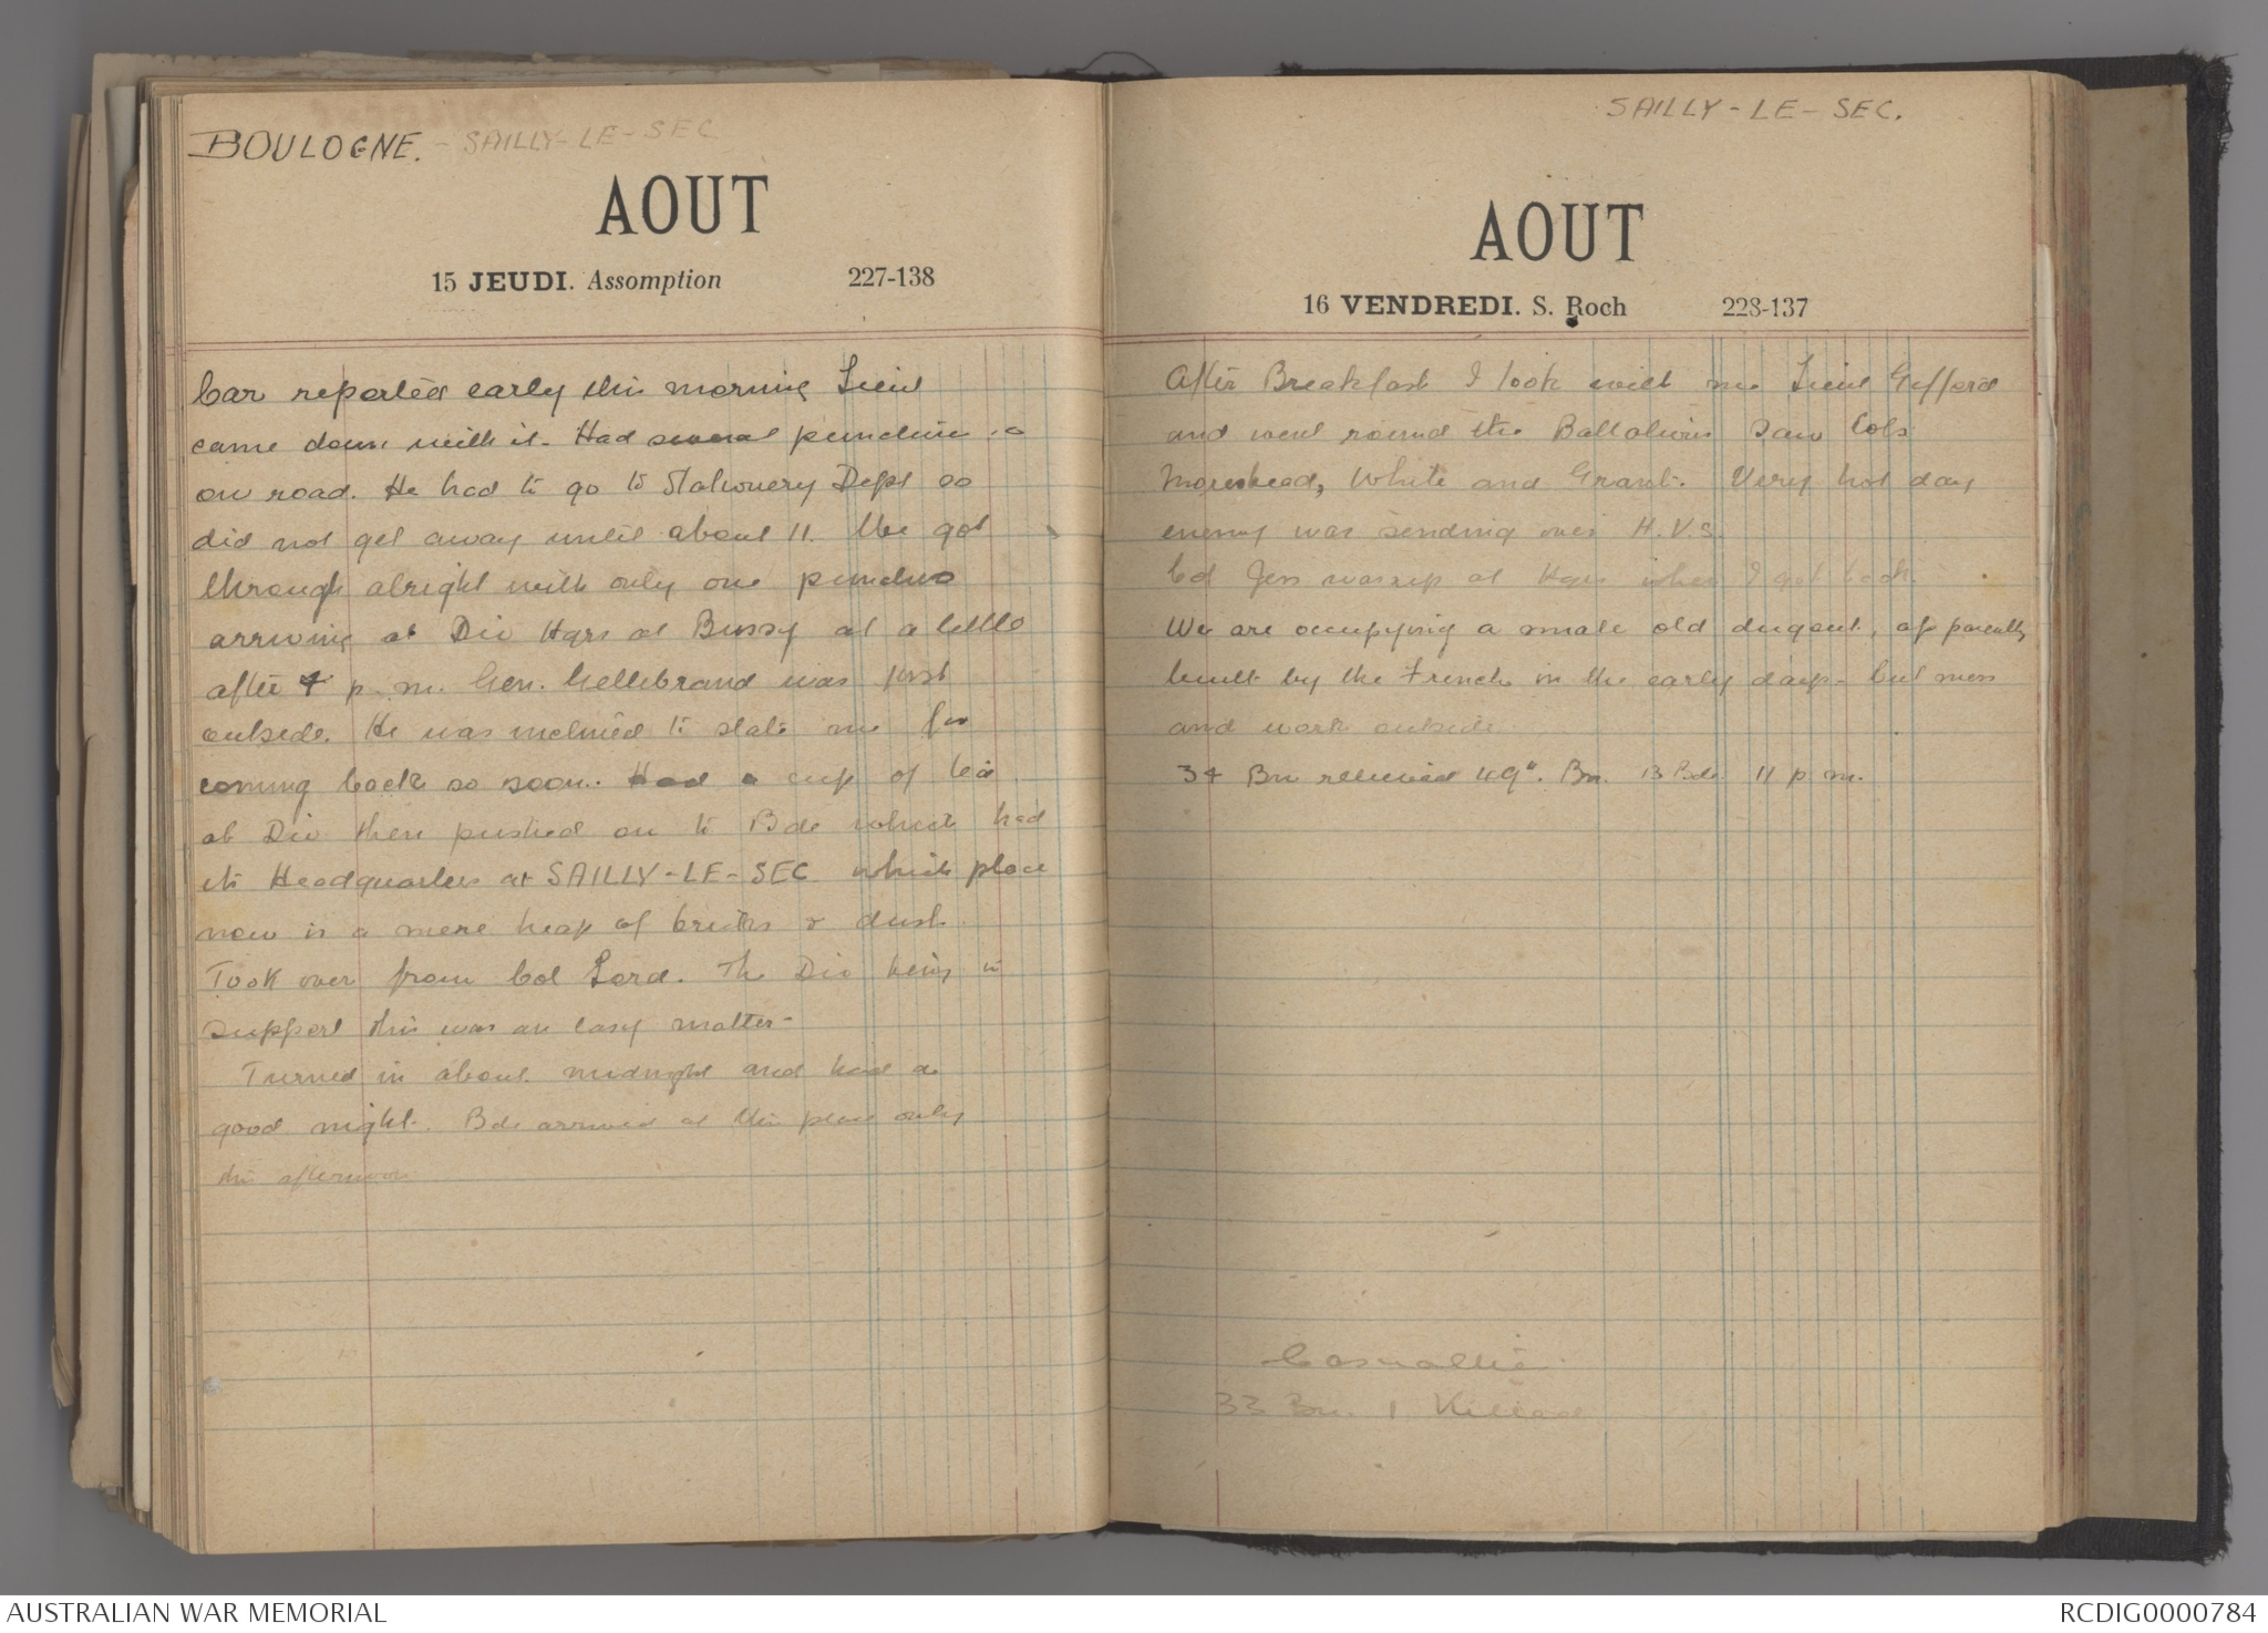 BOULOGNE. - SAILLY-LE-SEC
AOUT
15 JEUDI. Assomption 227-138
Car reported early this morning Lieut
came down with it. Had several punctures
on road. He had to go to Stationery Dept so
did not get away until about 11. We got
through alright with only one puncture
arriving at Div Hqrs at Bussy at a little
after 4 p.m. Gen. Gellibrand was just
outside. He was inclined to slate me for
coming back so soon. Had a cup of tea
at Div then pushed on to Bde which had
its Headquarters at SAILLY-LE-SEC which place
now is a mere heap of bricks & dust.
Took over from Col Lord. The Div being in
support this was an easy matter-
Turned in about midnight and had a
good night. Bde arrived at this place only
this afternoon
SAILLY-LE-SEC.
AOUT
16 VENDREDI. S. Roch 228-137
After Breakfast I took with me Lieut Gifford
and went round the Battalions Saw Cols
Morshead, White and Grant. Very hot day
enemy was sending over H.V.s.
Col Jess was up at Hqrs when I got back.
We are occupying a small old dugout, apparently
built by the French in the early days- but mess
and work outside.
34 Bn relieved 49th. Bn. 13 Bde. 11 p m.
Casualties
33 Bn. 1 Killed
AUSTRALIAN WAR MEMORIAL
RCDIG0000784